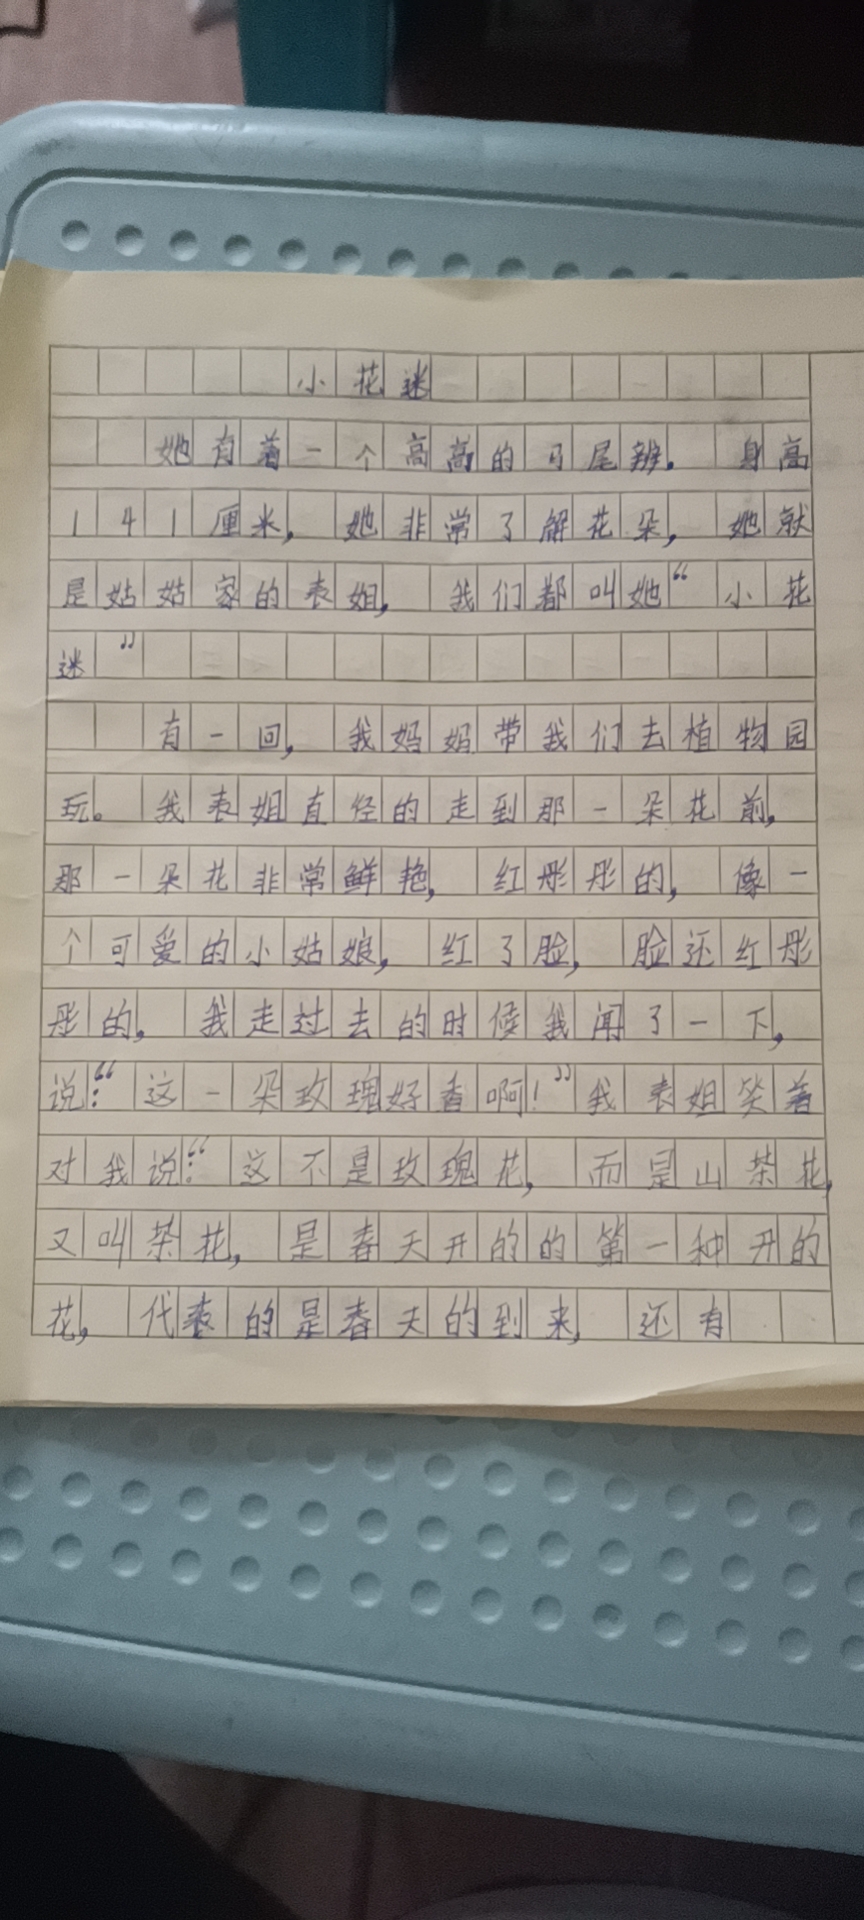 小花迷
她有着一个高高的马尾辨。身高
141厘米，她非常了解花朵，她就
是姑姑家的表姐，我们都叫她“小花
迷”
有一回，我妈妈带我们去植物园
玩。我表姐直径的走到那一朵花前，
那一朵花非常鲜艳，红彤彤的，像一
个可爱的小姑娘，红了脸，脸还红彤
彤的，我走过去的时候我闻了一下，
说：“这一朵玫瑰好香啊！”我表姐笑着
对我说：“这不是玫瑰花，而是山茶花，
又叫茶花，是春天开的的第一种开的
花，代表的是春天的到来，还有